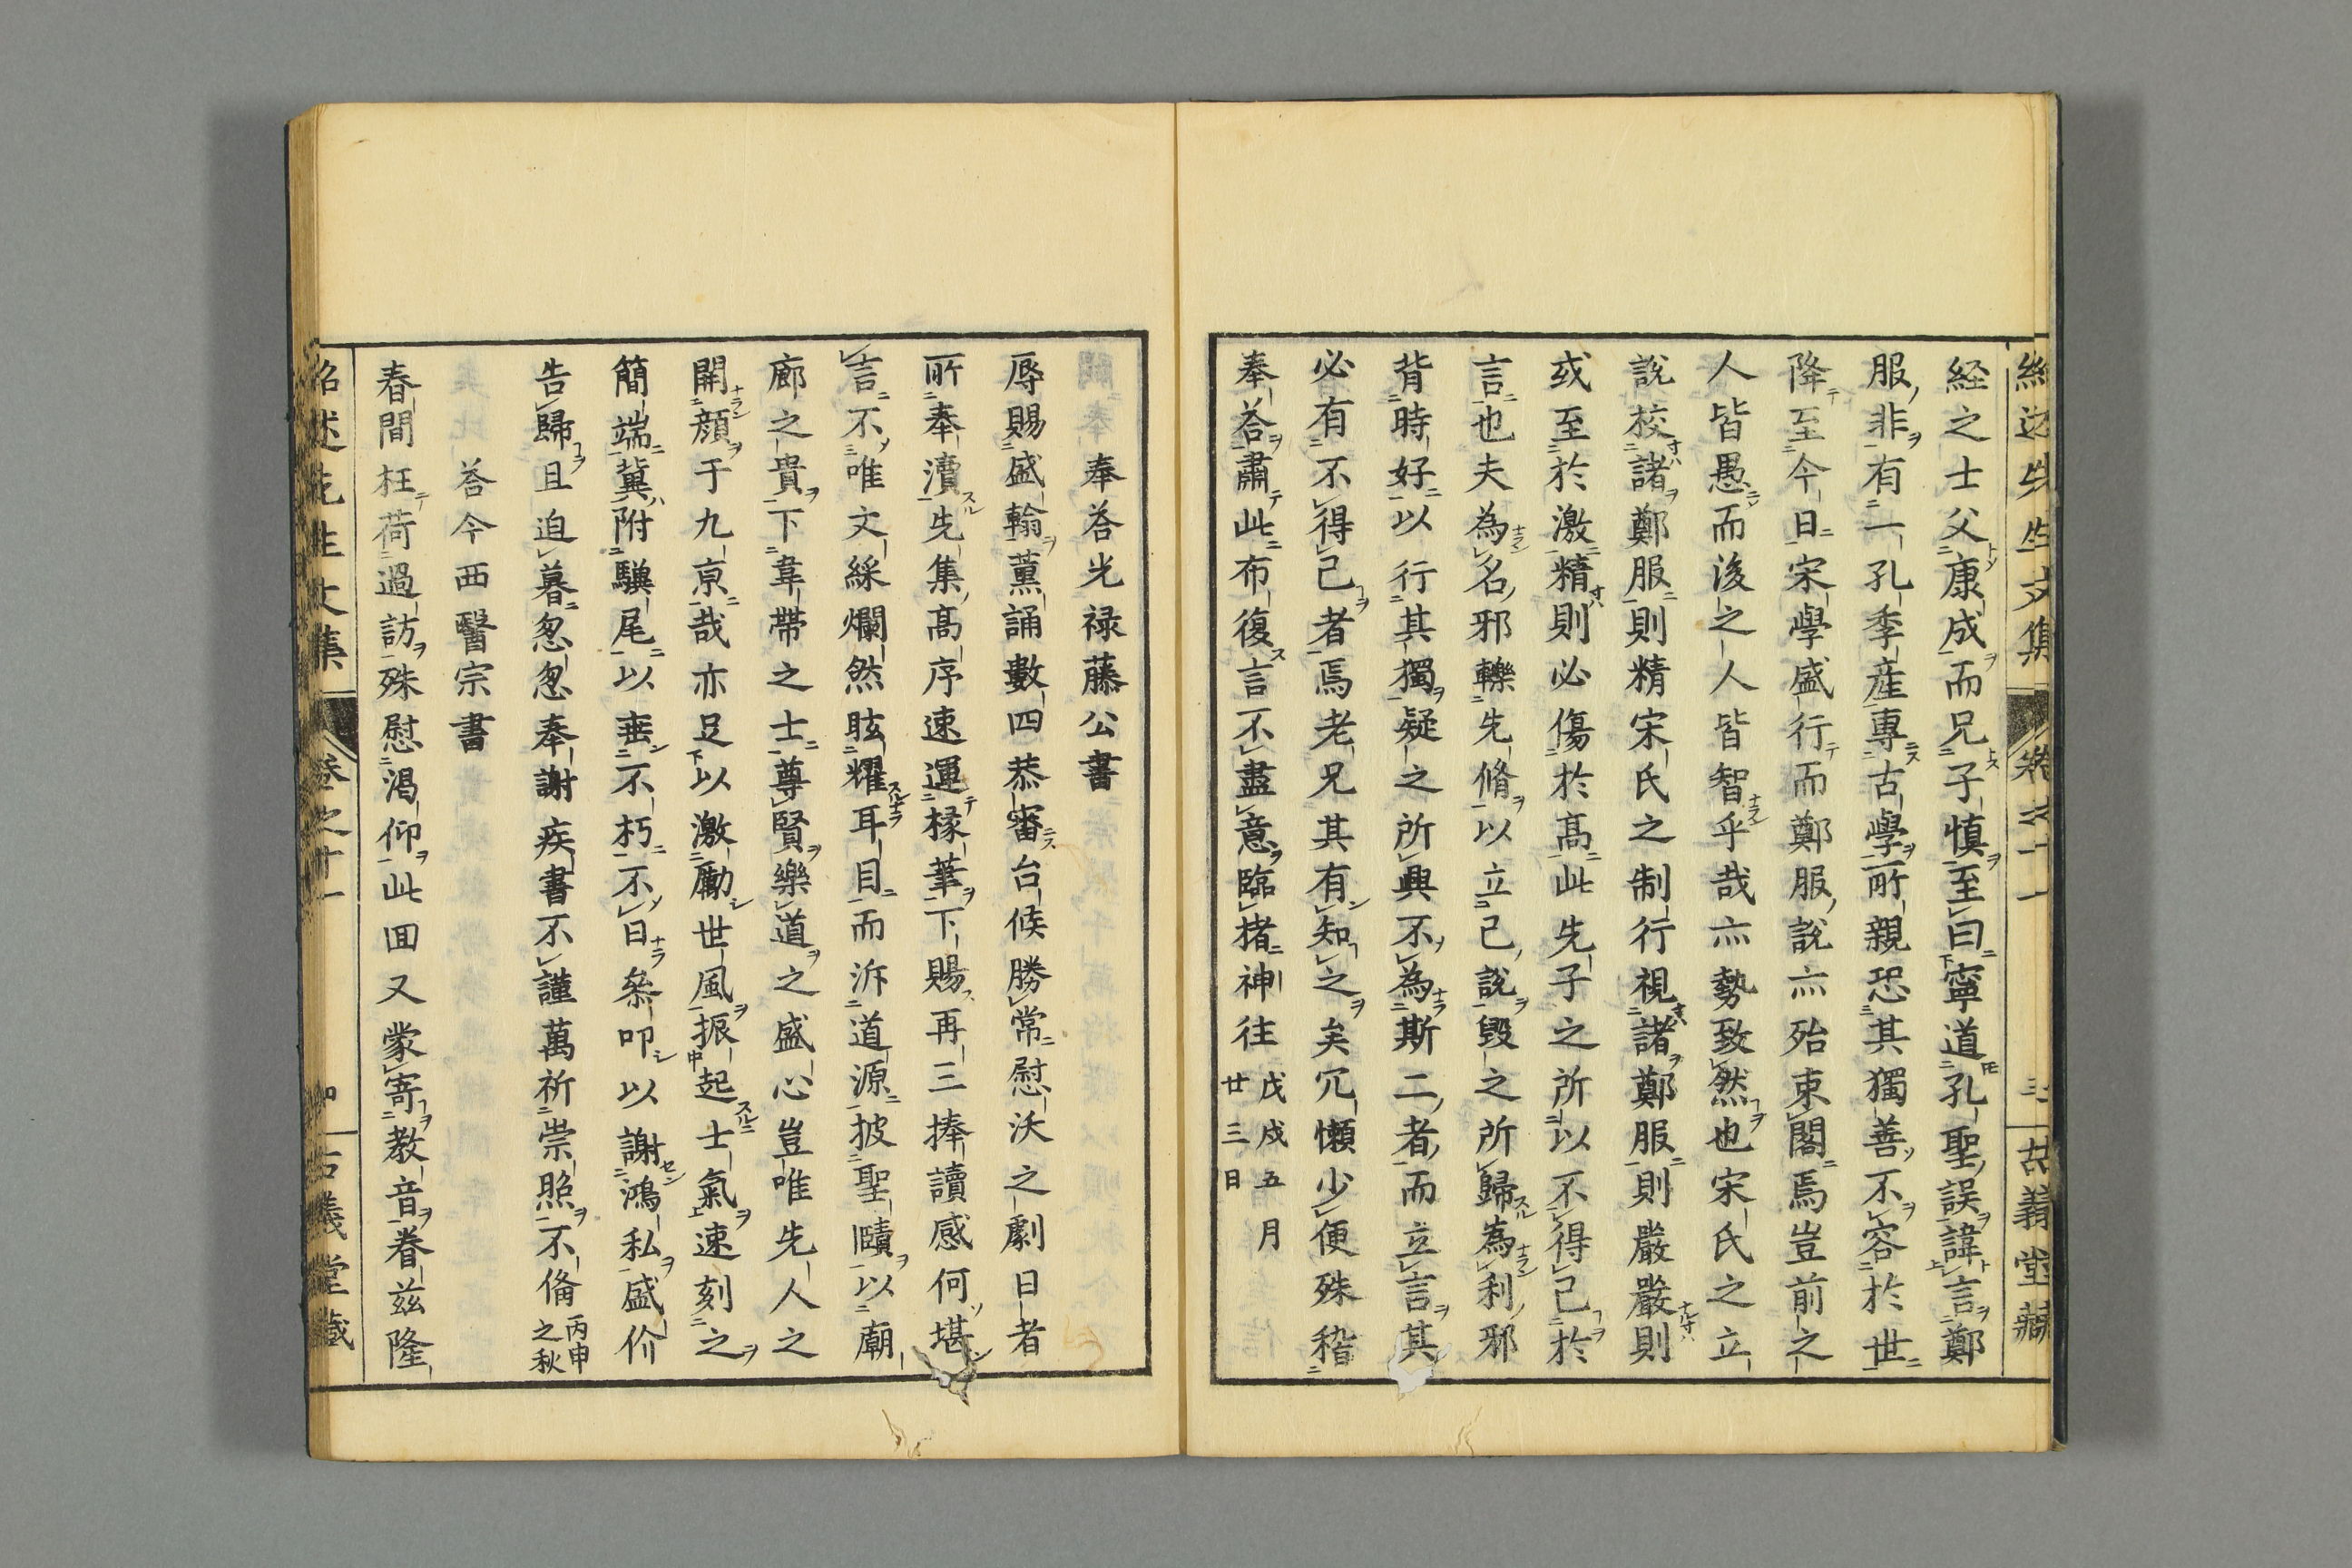 紹述先生文集 卷之十一 古義堂藏
経之士父康成而兄子慎至曰寧道孔聖誤諱言鄭
服非有一孔季産專古學所親恐其獨善不容於世
降至今日宋學盛行而鄭服說亦殆束閣焉豈前之
人皆愚而後之人皆智乎哉亦勢致然也宋氏之立
說校諸鄭服則精宋氏之制行視諸鄭服則嚴嚴則
或至於激精則必傷於高此先子之所以不得已於
言也夫為名邪轢先脩以立己說毀之所歸為利邪
背時好以行其獨疑之所興不為斯二者而立言其
必有不得已者焉老兄其有知之矣冗懶少便殊稽
奉荅肅此布復言不盡意臨楮神往 戊戌五月廿三日
奉荅光禄藤公書
辱賜盛翰薫誦數四恭審台候勝常慰沃之劇日者
所奉瀆先集高序速運椽筆下賜再三捧讀感何堪
言不唯文綵爛然眩耀耳目而泝道源披聖賾以廟
廊之貴下韋帶之士尊賢樂道之盛心豈唯先人之
開顔于九京哉亦足以激勵世風振起士氣速刻之
簡端冀附驥尾以垂不朽不日叅叩以謝鴻私盛价
告歸且迫暮怱怱奉謝疾書不謹萬祈崇照不俻 丙申之秋
荅今西醫宗書
春間枉荷過訪殊慰渴仰此回又蒙寄教音眷茲隆
紹述先生文集 卷之十一 古義堂藏